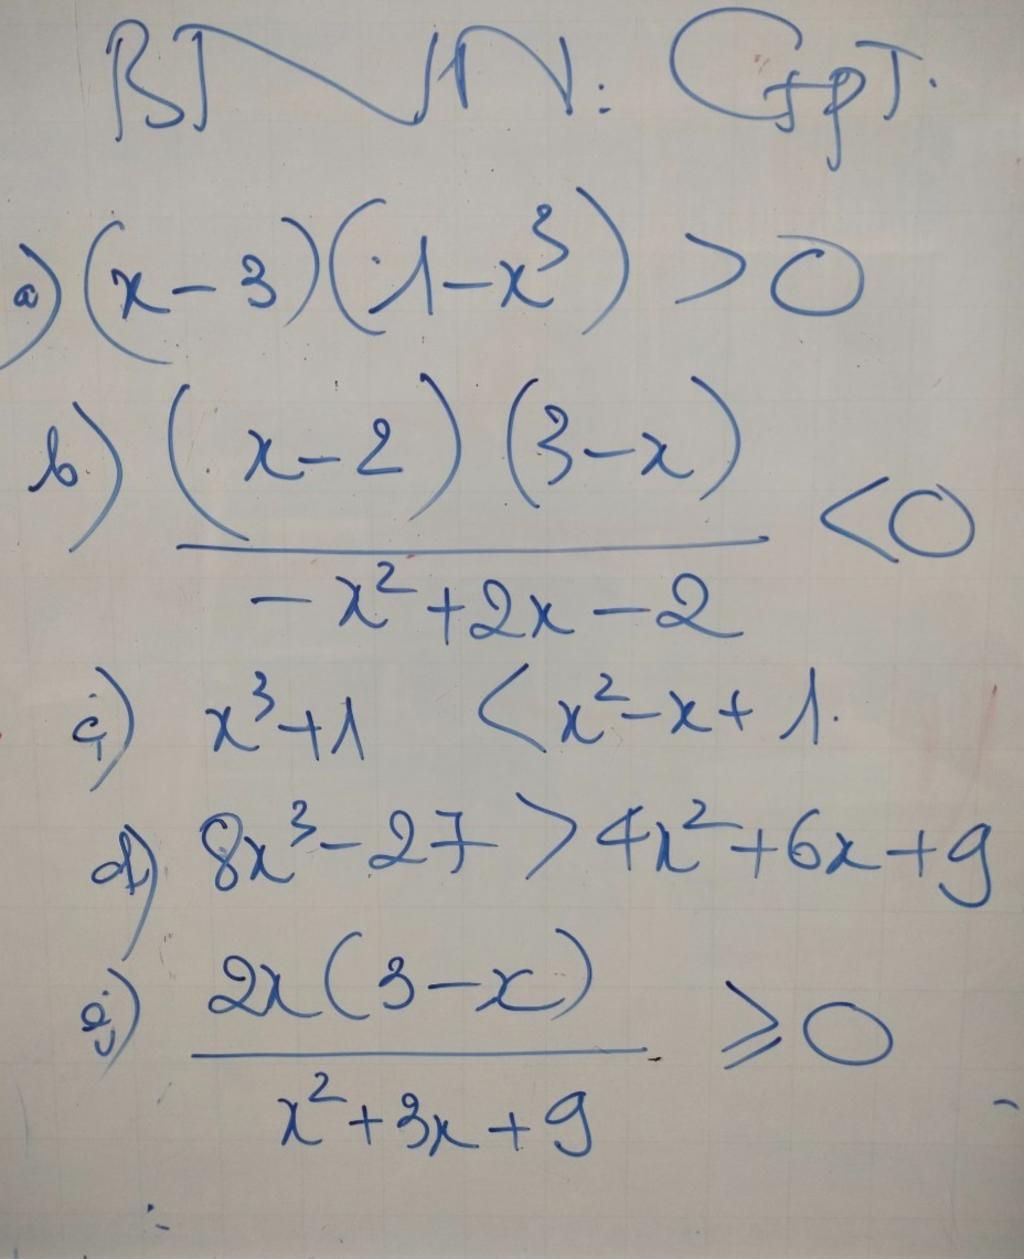 BTVN: GBPT.
a) (x-3)(1-x³) > 0
b) (x-2)(3-x) / -x²+2x-2 < 0
c) x³+1 < x²-x+1.
d) 8x³-27 > 4x²+6x+9
e) 2x(3-x) / x²+3x+9 ≥ 0